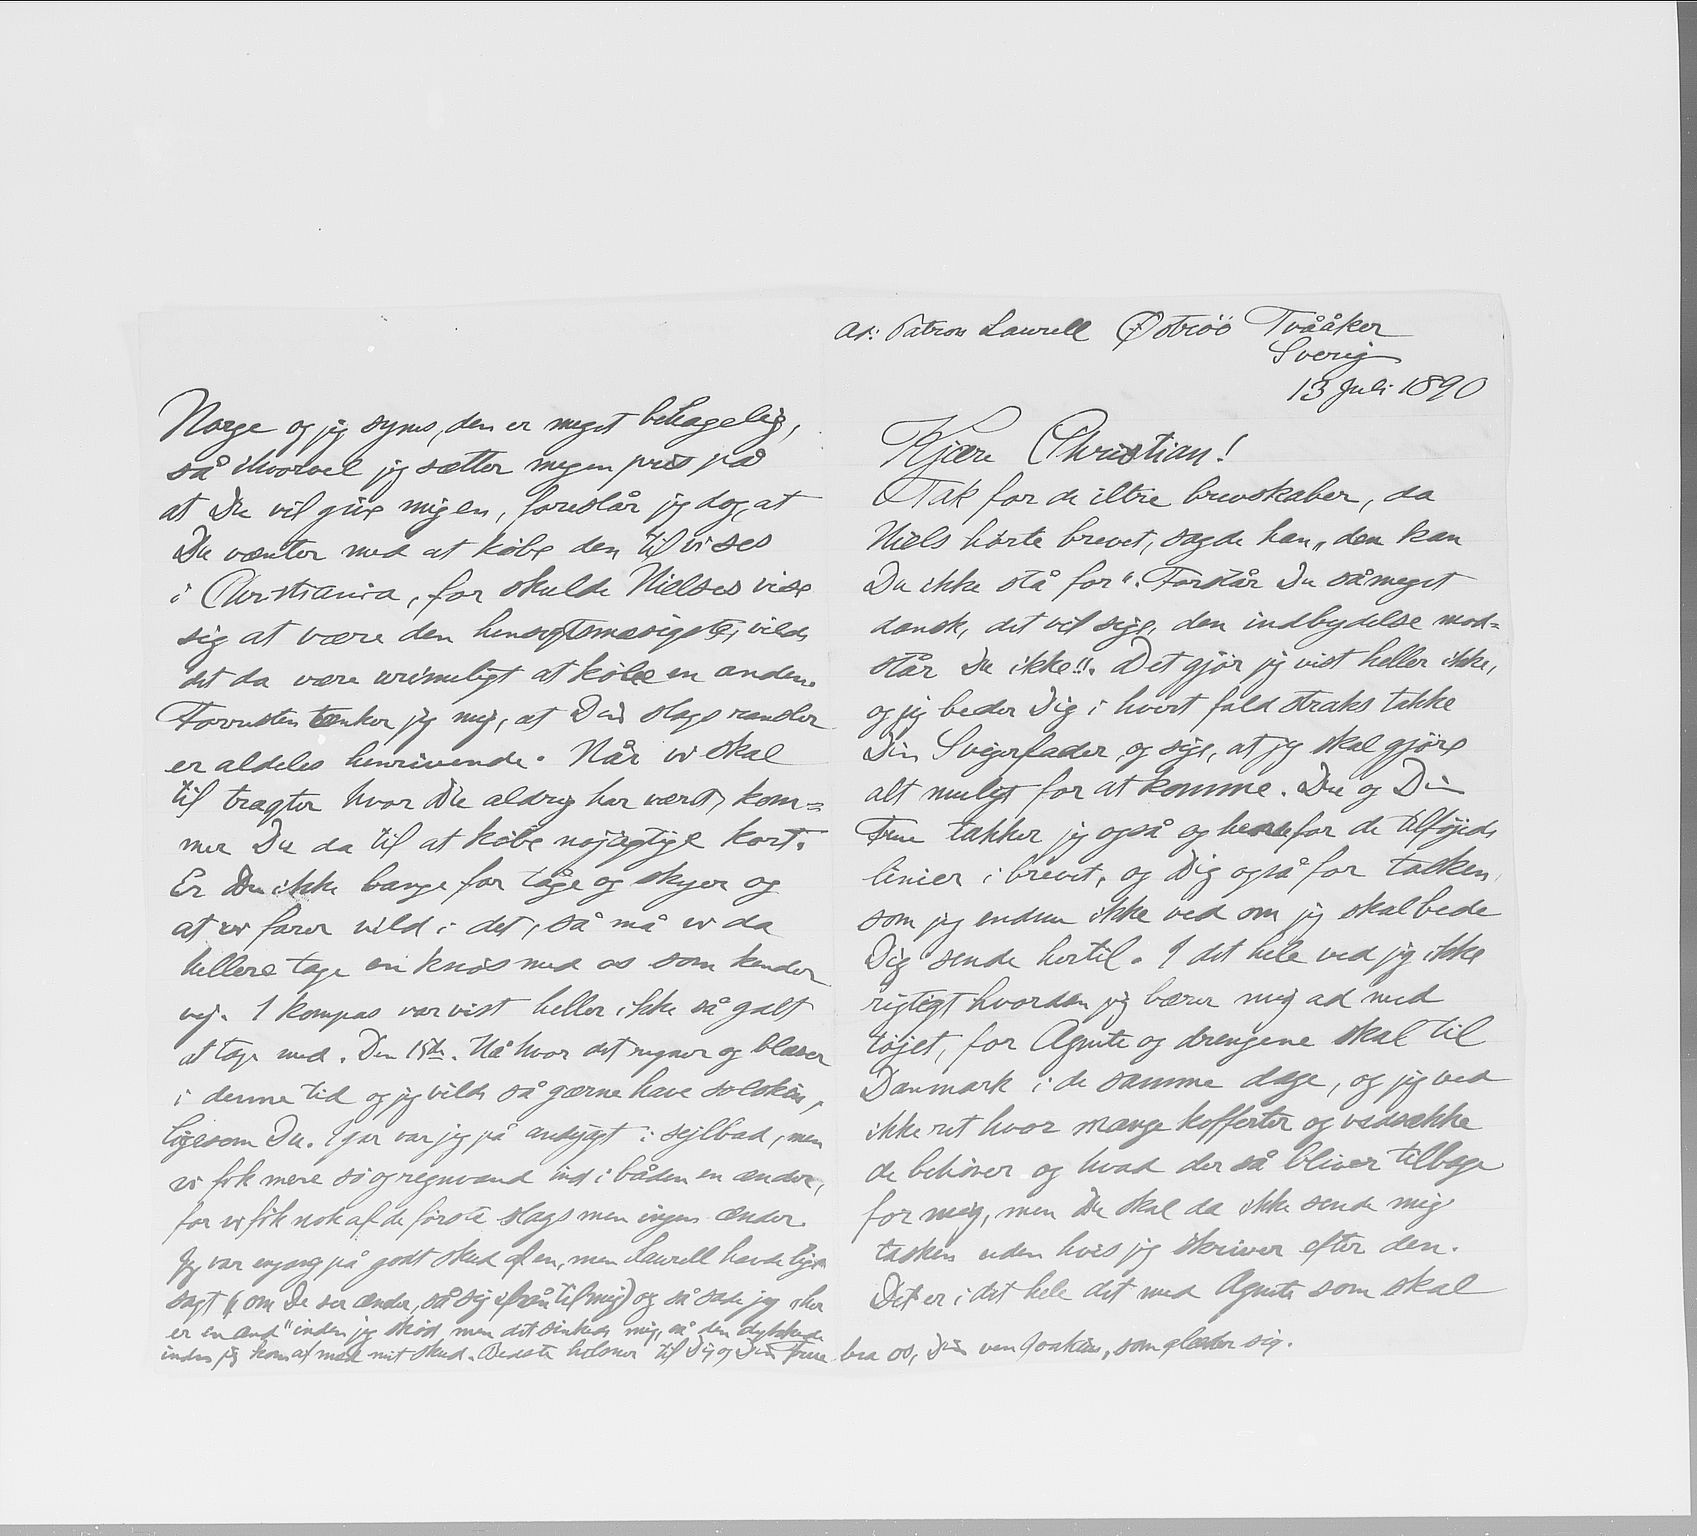 Ad: Patron Laurell Öströö Tvååker
Sverig
13 Juli 1890
Kjære Christian!
Tak for de iltre brevskaber, da
Niels hørte brevet, sagde han „den kan
Du ikke stå for“. Forstår Du såmeget
dansk, det vil sige, den indbydelse mod=
står Du ikke!!. Det gjør jeg vist heller ikke,
og jeg beder Dig i hvert fald straks takke
Din Svigerfader og sige, at jeg skal gjøre
alt muligt for at komme. Du og Din
Frue takker jeg også og for de tilføjede
linier i brevet, og Dig også for tasken,
som jeg endnu ikke ved om jeg skal bede
Dig sende hertil. I det hele ved jeg ikke
rigtigt hvordan jeg bærer mig ad med
tøjet, for Agnete og drengene skal til
Danmark i de samme dage, og jeg ved
ikke ret hvor mange kofferter og vadsække
de behøver og hvad der så bliver tilbage
for mig, men Du skal da ikke sende mig
tasken uden hvis jeg skriver efter den.
Det er i det hele dit med Agnete som skal
Norge og jeg synes, den er meget behagelig,
så ihvorvel jeg sætter megen pris på
at Du vil give mig en, foreslår jeg dog, at
Du venter med at købe den til vi ses
i Christiania, for skulde Nielses vise
sig at være den hensigtsmæsigste, vilde
det da være urimeligt at købe en anden.
Forresten tænker jeg mig, at Din slags ransler
er aldeles henrivende. Når vi skal
til tragter hvor Du aldrig har været, kom=
mer Du da til at købe nøjagtige kort.
Er Du ikke bange for tåge og skyer og
at vi farer vild i det, så må vi da
hellere tage en knøs med os som kender
vej. 1 kompas var vist heller ikke så galt
at tage med. Den 15de. Nå hvor det regner og blæser
i denne tid og jeg vilde så gærne have solskin,
ligesom Du. Igår var jeg på andejagt i sejlbåd, men
vi fik mere sø og regnvand ind i båden en ænder,
for vi fik nok af de første slags men ingen ænder.
Jeg var engang på godt skud af en, men Laurell havde lige
sagt (om De ser ænder, så sig til mig) og så sade jeg „her
er en and“ inden jeg skød, men det sinkede mig, så den dykkede
inden jeg kom af med mit skud. Bedste hilsner til Dig og Din Frue fra os, Din ven Joakim, som glæder sig.